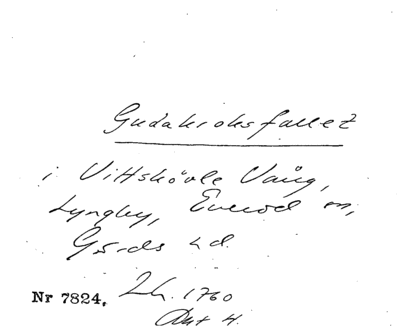 Gudakroksfallet
i Vittskövle Vång,
Lyngby, Everöd m,
Gärds hd.
Nr 7824, Lh. 1760
Akt 4.